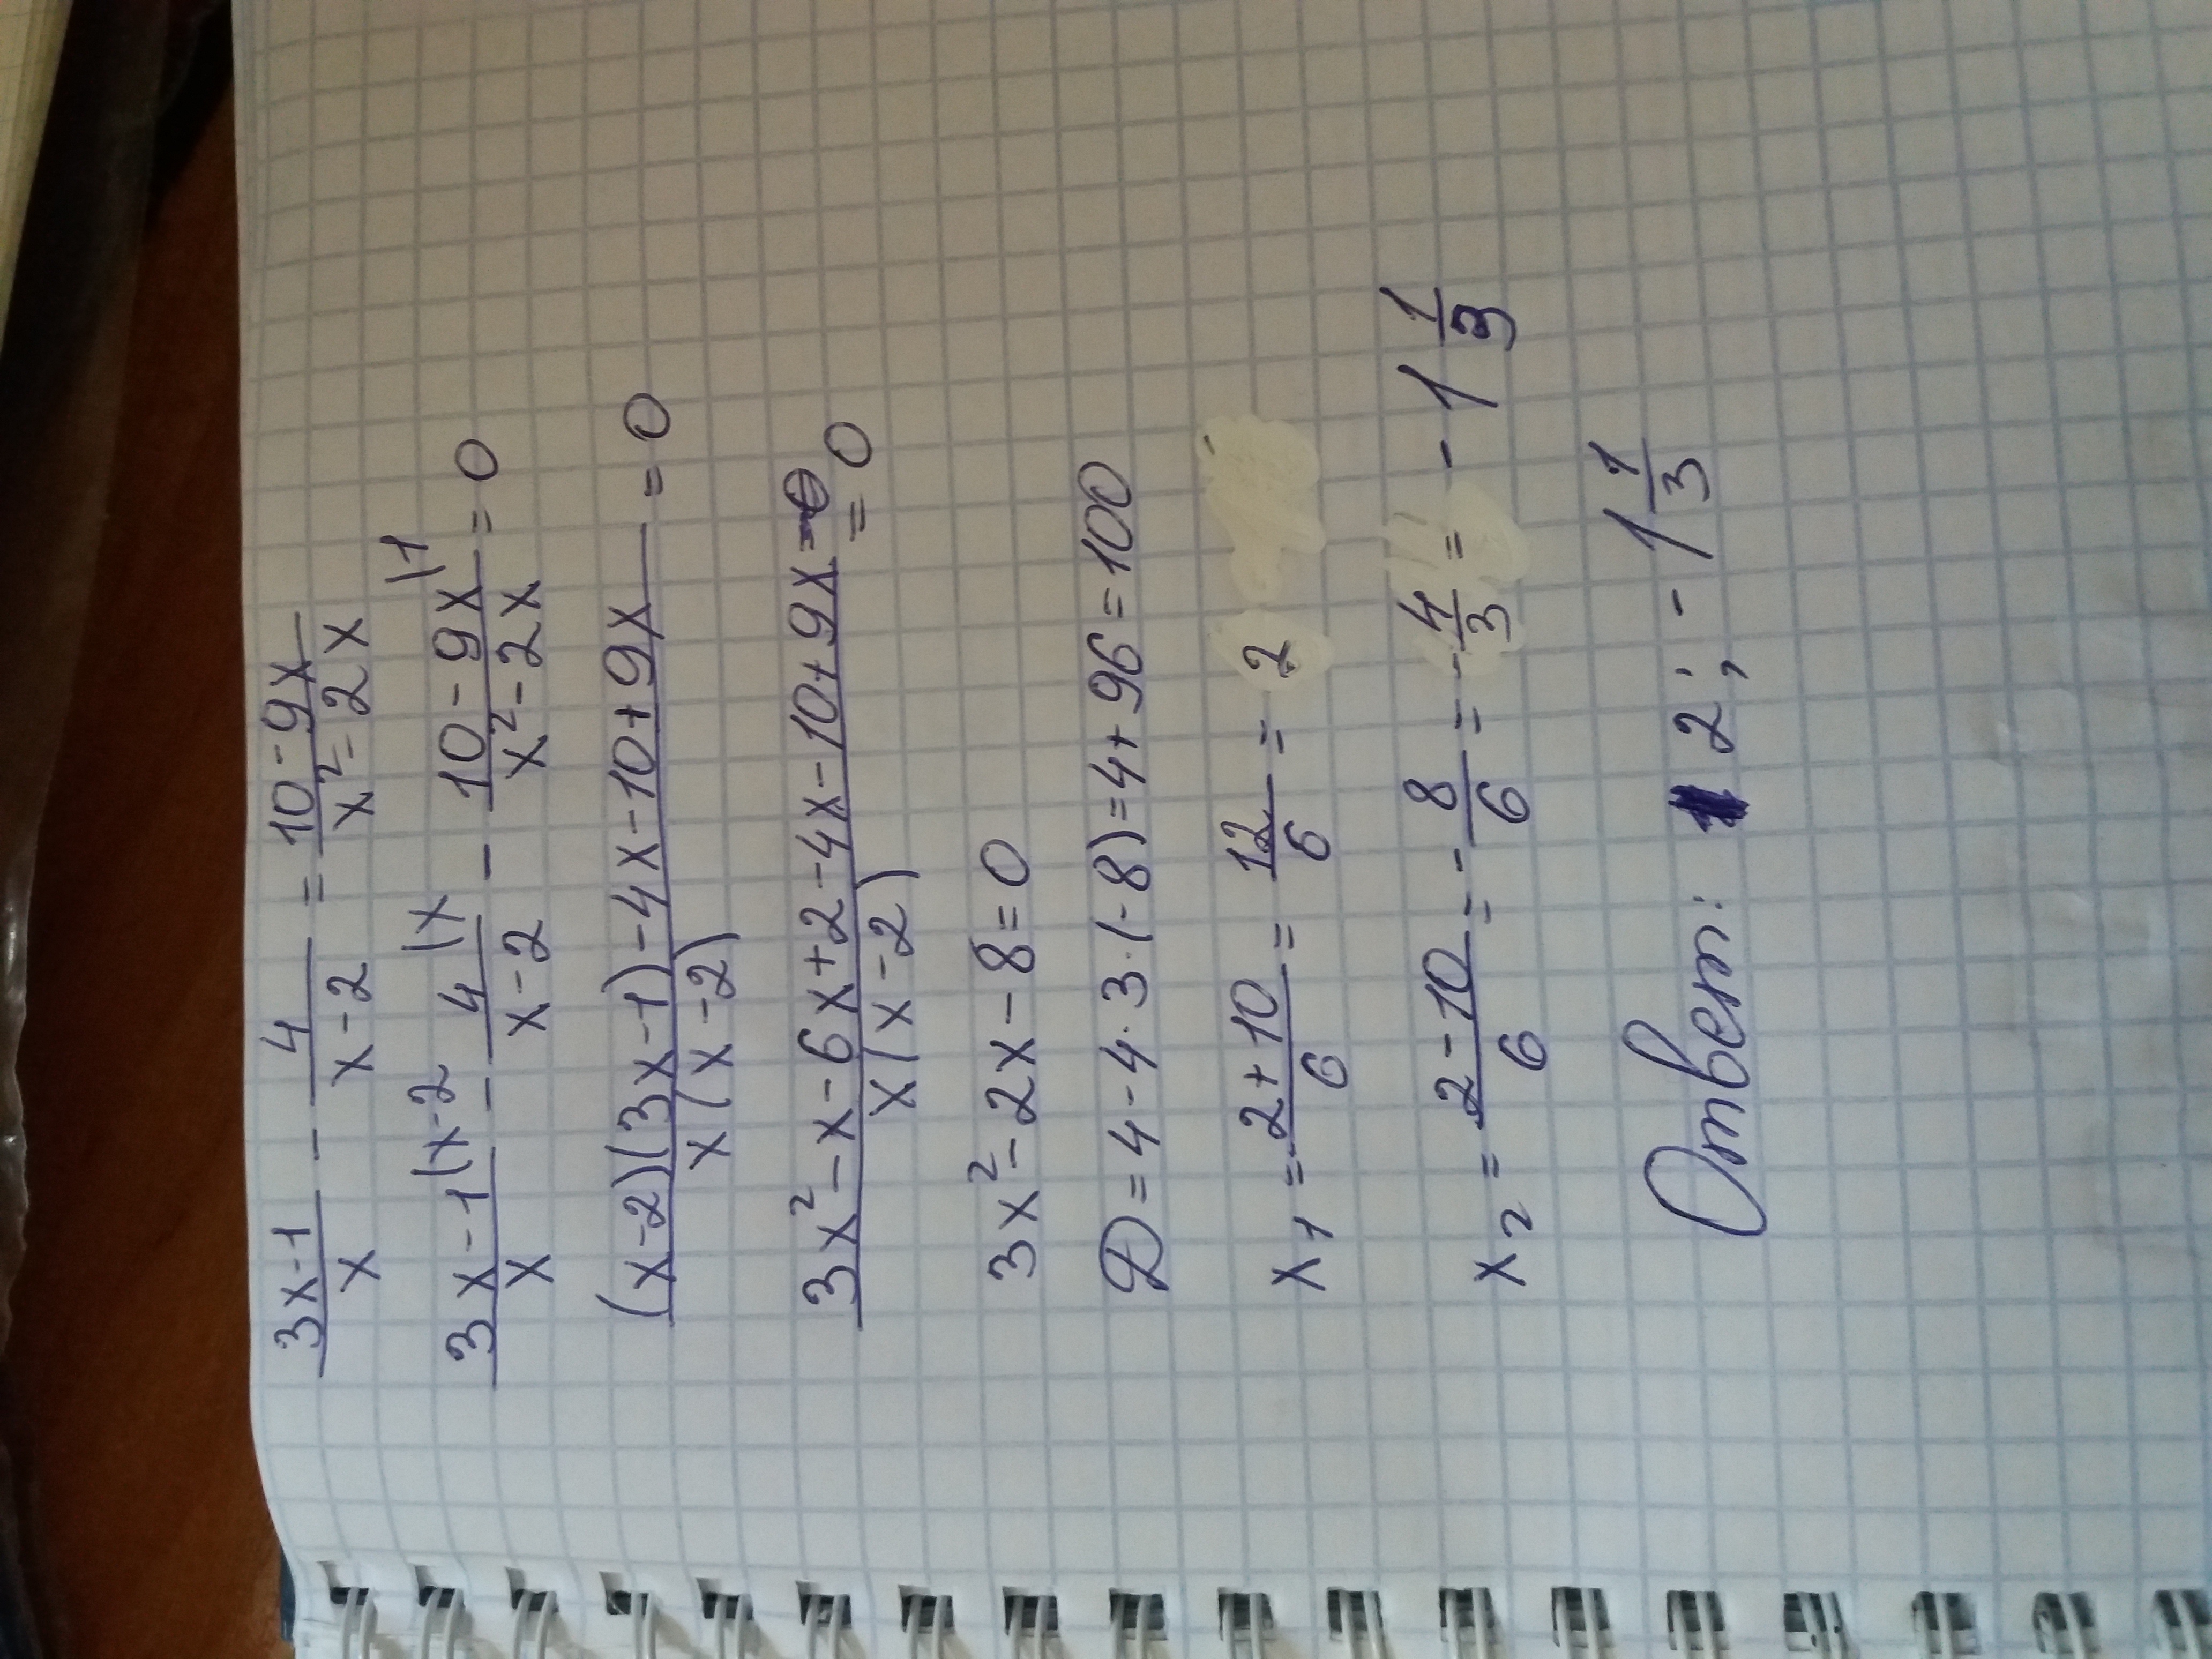 (3x-1)/x - 4/(x-2) = (10-9x)/(x²-2x)
(3x-1)/x |x-2 - 4/(x-2) |x - (10-9x)/(x²-2x) |1 = 0
((x-2)(3x-1)-4x-10+9x)/(x(x-2)) = 0
(3x²-x-6x+2-4x-10+9x)/(x(x-2)) = 0
3x²-2x-8=0
D=4-4·3·(-8)=4+96=100
x₁ = (2+10)/6 = 12/6 = 2
x₂ = (2-10)/6 = -8/6 = -4/3 = -1 1/3
Ответ: 2; -1 1/3